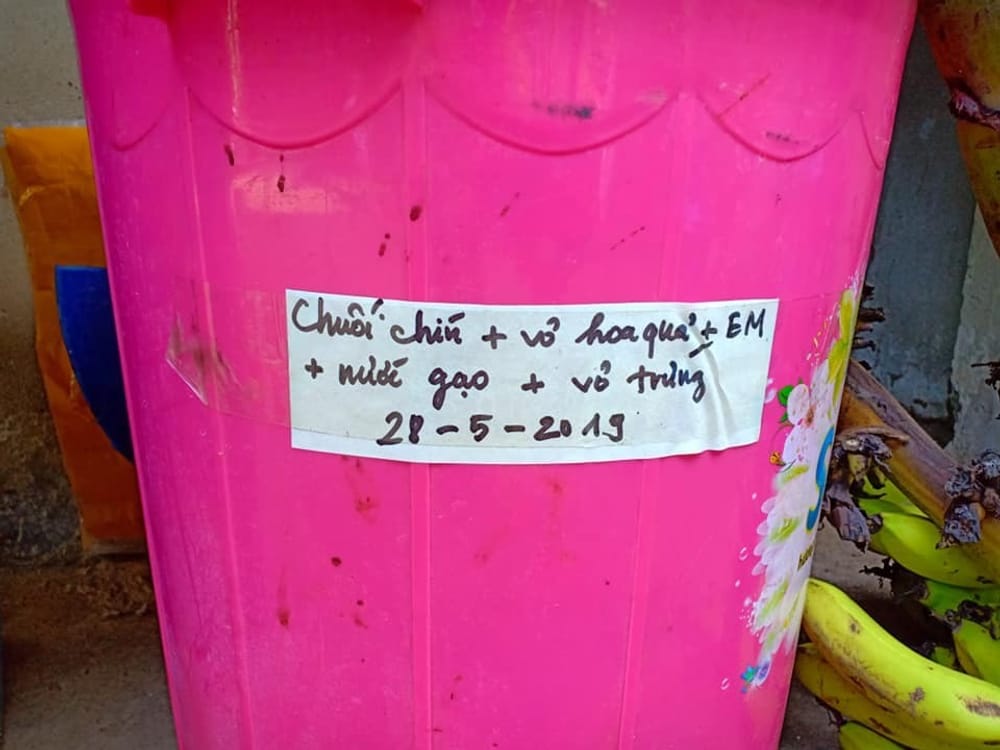 Chuối chín + vỏ hoa quả + EM
+ nước gạo + vỏ trứng
28-5-2019